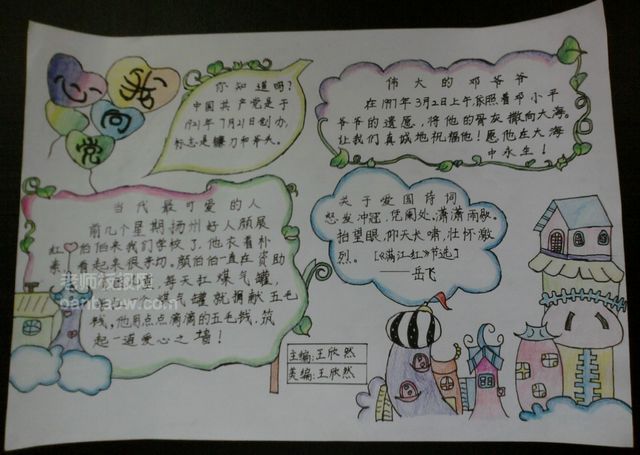 心
我
向
党
你知道吗?
中国共产党是于
1921年7月21日创办,
标志是镰刀和斧头。
伟大的邓爷爷
在1997年3月2日上午,依照着邓小平
爷爷的遗愿,将他的骨灰撒向大海。
让我们真诚地祝福他!愿他在大海
中永生!
当代最可爱的人
前几个星期,扬州好人颜展
红
伯伯来我们学校了,他衣着朴
素,看起来很亲切。颜伯伯一直在资助
每天扛煤气罐,
罐就捐献五毛
钱,他用点点滴滴的五毛钱,筑
起一道爱心之墙!
关于爱国诗词
怒发冲冠,凭阑处、潇潇雨歇。
抬望眼,仰天长啸,壮怀激
烈。【《满江红》节选】
——岳飞
主编:王欣然
美编:王欣然
老师板报网
banbaow.com